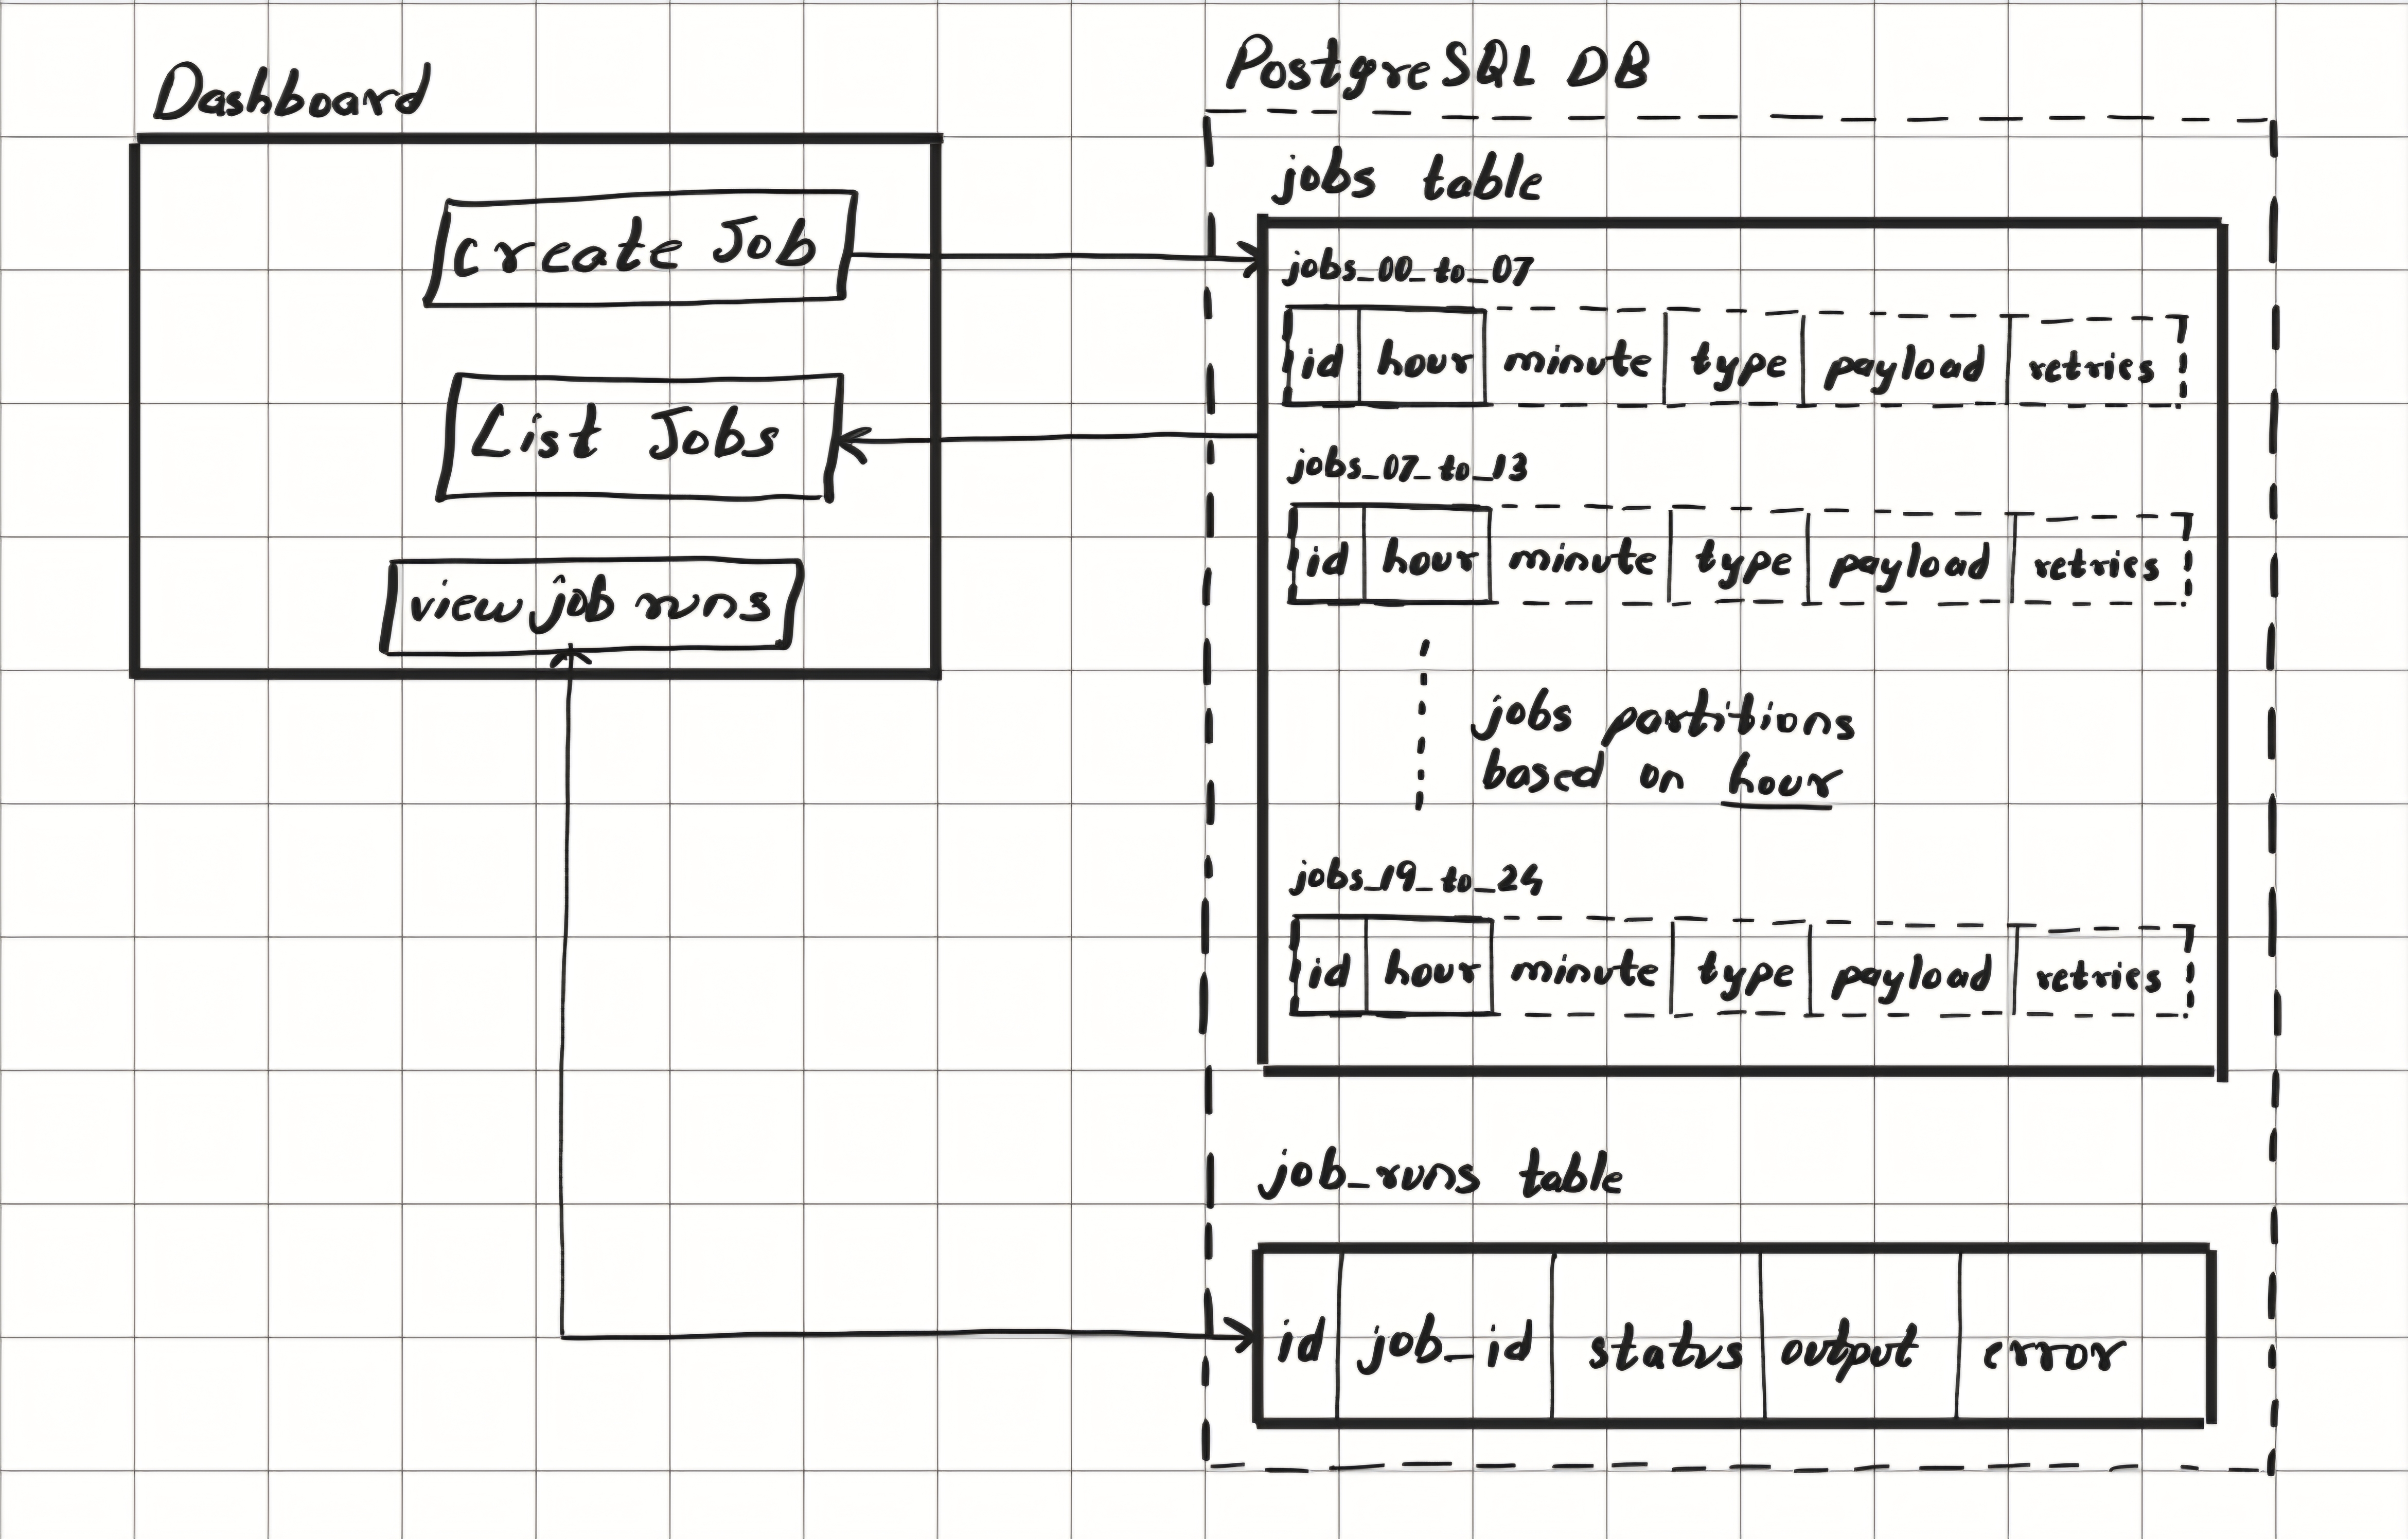 Dashboard
create Job
List Jobs
view job runs
PostgreSQL DB
jobs table
jobs_00_to_07
id hour minute type payload retries
jobs_07_to_13
id hour minute type payload retries
jobs partitions
based on hour
jobs_19_to_24
id hour minute type payload retries
job_runs table
id job_id status output error